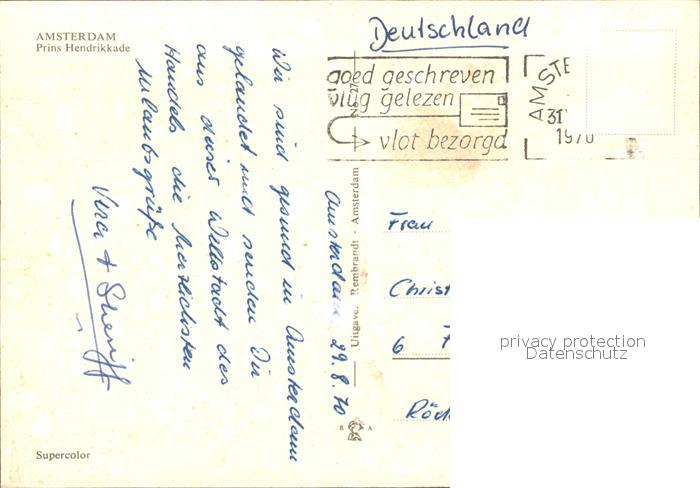 AMSTERDAM
Prins Hendrikkade
Deutschland
goed geschreven
vlug gelezen
vlot bezorgd
AMSTE
31
1970
Amsterdam 29.8.70
Wir sind gesund in Amsterdam
gelandet und senden Dir
aus dieser Weltstadt des
Handels die herzlichsten
Urlaubsgrüße
Vera + Sheriff
Uitgave: Rembrandt - Amsterdam
R A
Frau
Christ
6 F
Röd
privacy protection
Datenschutz
Supercolor